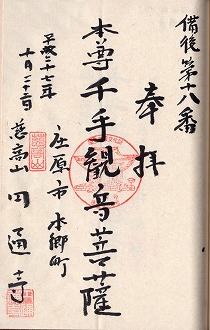 備後第十八番
奉拝
本尊千手観音菩薩
庄原市本郷町
平成二十七年
十月二十六日
慈高山円通寺